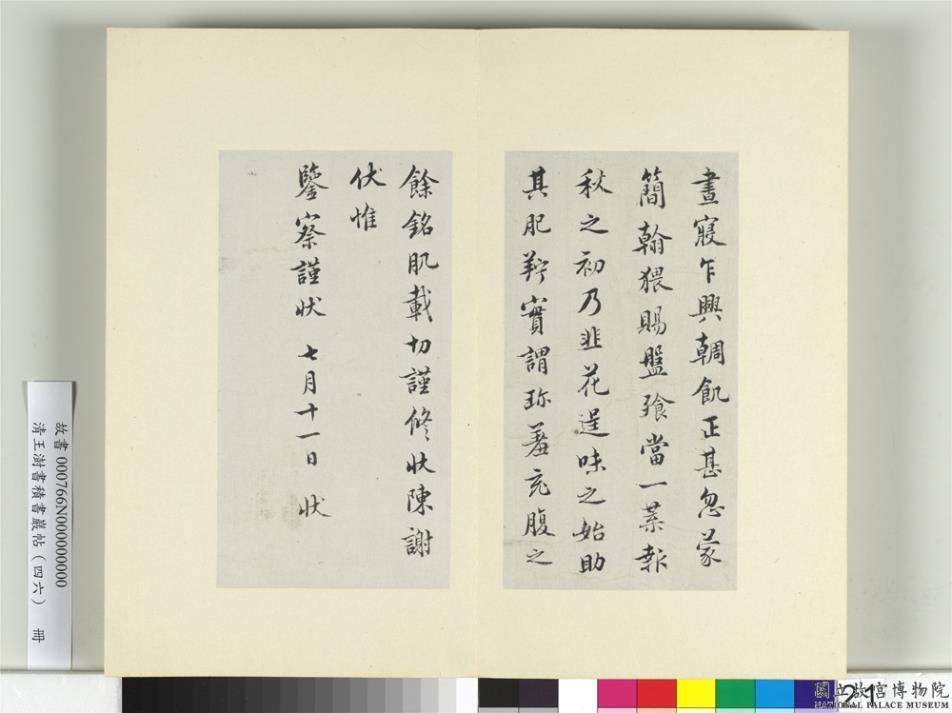 晝寢乍興輖飢正甚忽蒙
簡翰猥賜盤飱當一葉報
秋之初乃韭花逞味之始助
其肥羜實謂珎羞充腹之
餘銘肌載切謹修狀陳謝
伏惟
鑒察謹狀 七月十一日 狀
故書 000766N000000000
清王澍書積書巖帖(四六) 冊
國立故宮博物院
NATIONAL PALACE MUSEUM
21